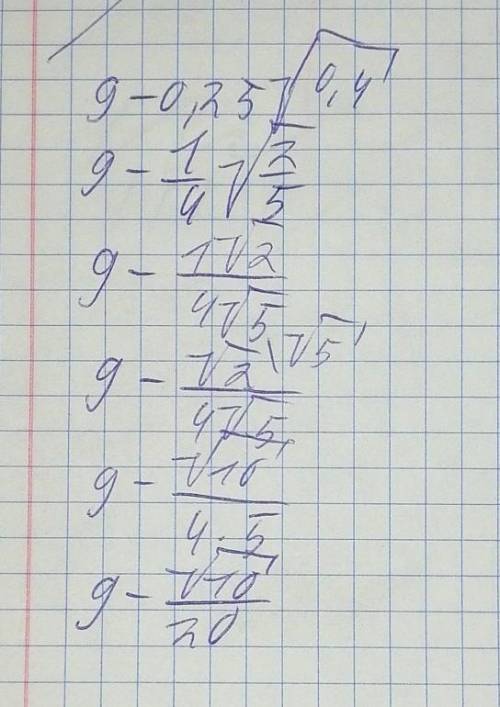 9 - 0,25 √0,4
9 - 1/4 √2/5
9 - 1√2/4√5
9 - √2\√5/4√5
9 - √10/4·5
9 - √10/20